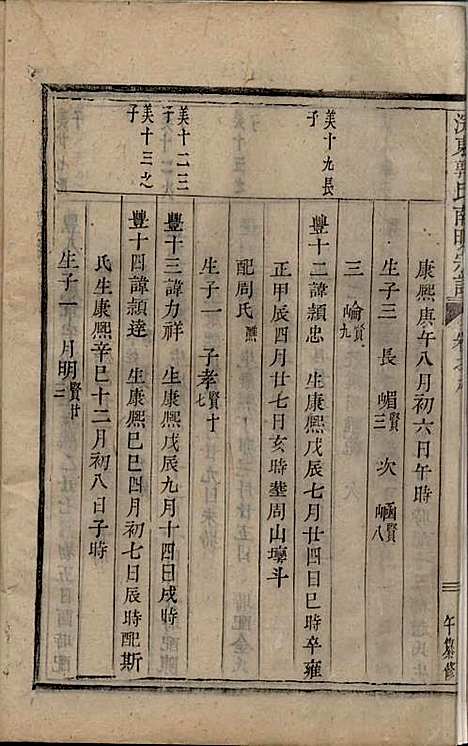 康熙庚午八月初六日午時
生子三 長嵋賢三 次崡賢八
三崳賢九
美十九長子
豐十二諱穎忠 生康熙戊辰七月廿四日巳時卒雍
正甲辰四月廿七日亥時塟周山塆斗
配周氏 譙
生子一 子孝賢十七
美十二三子
豐十三諱力祥 生康熙戊辰九月十四日戌時
美十三之子
豐十四諱穎達 生康熙己巳四月初七日辰時配斯
氏生康熙辛巳十二月初八日子時
生子一 月明賢廿三
午纂修